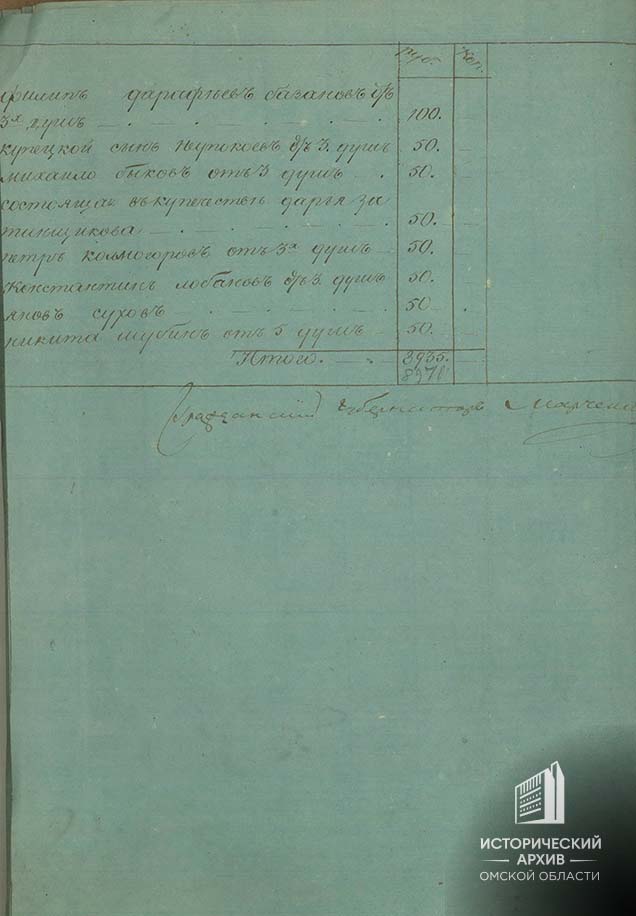 Руб. Коп.
филипъ дарафѣевъ базановъ отъ
3х душъ 100.
купецкой сынъ отъ 3. душъ 50.
михаило быковъ отъ 3 душъ 50.
состояща въ купечествѣ дарья за
тинщикова 50.
петръ колмогоровъ отъ 3х душъ 50.
Константинъ лобановъ отъ 3. душъ 50.
яковъ суховъ 50
никита шубинъ отъ 5 душъ 50.
Итого. 3935.
Гражданскій Губернаторъ
ИСТОРИЧЕСКИЙ
АРХИВ
ОМСКОЙ ОБЛАСТИ